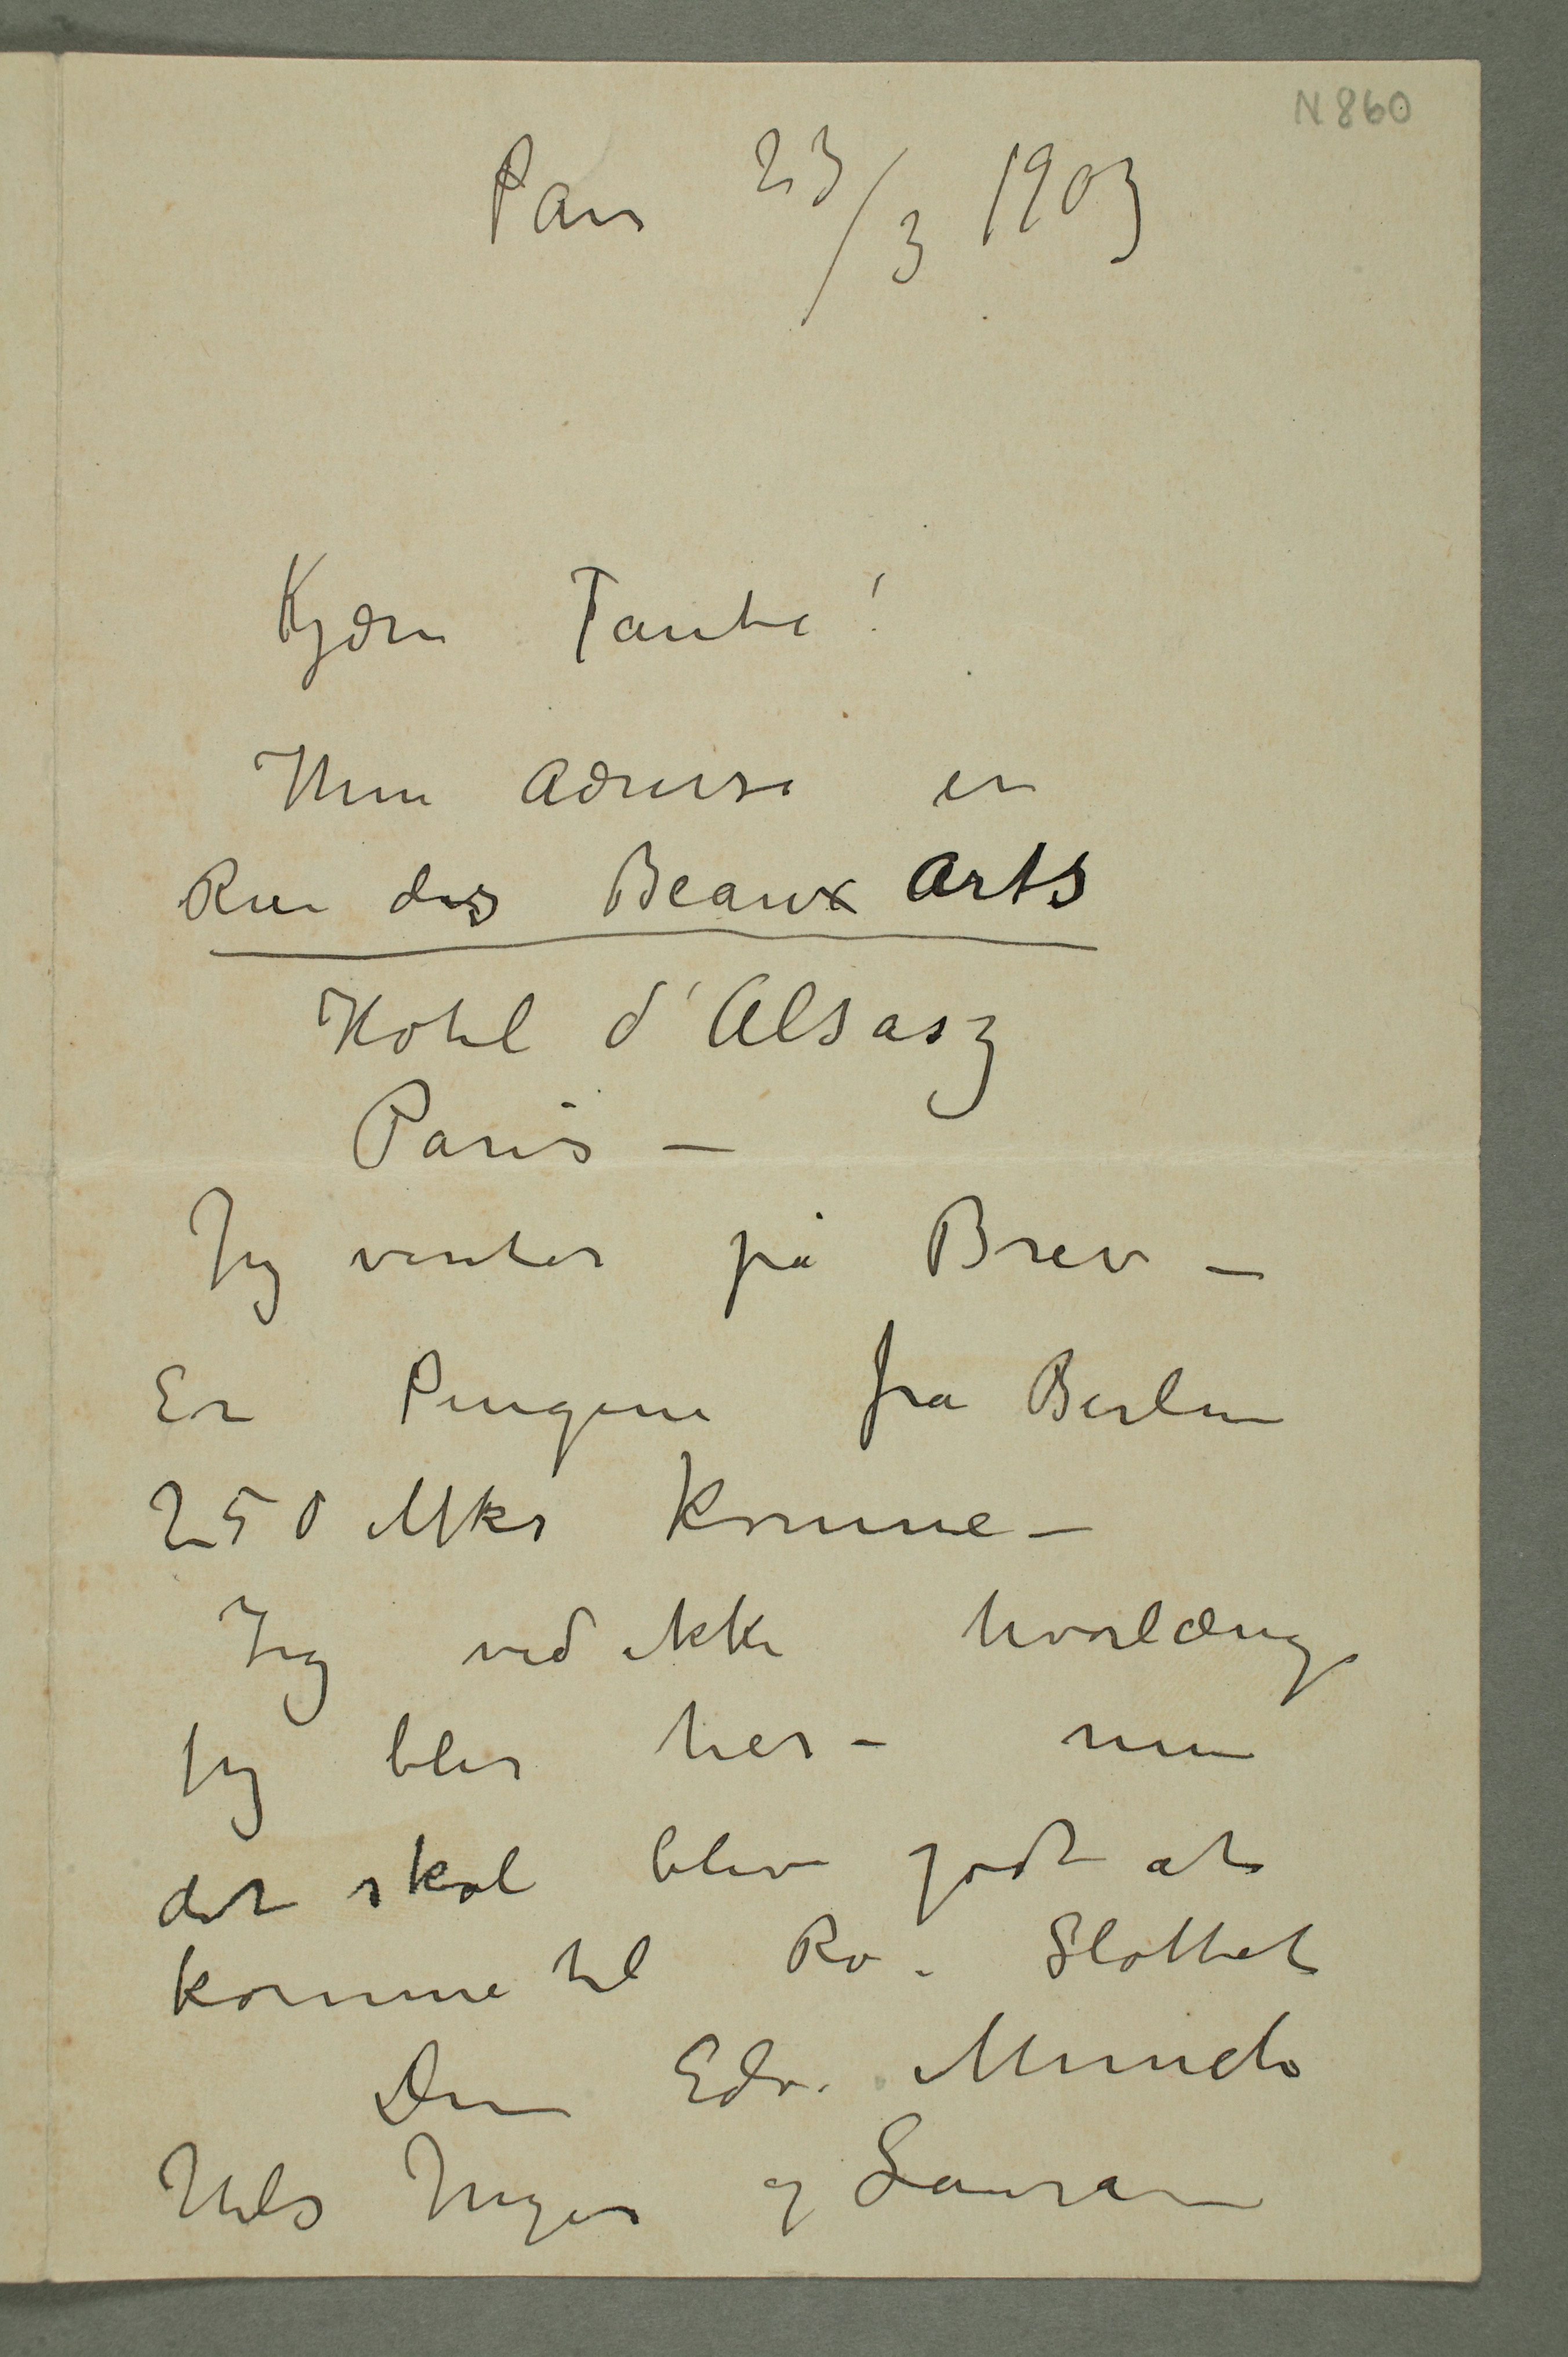 N 860
Paris 23/3 1903
Kjære Tante!
Min Adresse er
Rue des Beaux Arts
Hotel d'Alsasz
Paris –
Jeg venter på Brev –
Er Pengene fra Berlin
250 Mks komne –
Jeg ved ikke hvorlænge
jeg blir her – men
det skal blive godt at
komme til Ro. Slottet
Din Edv. Munch
Hils Inger og Laura